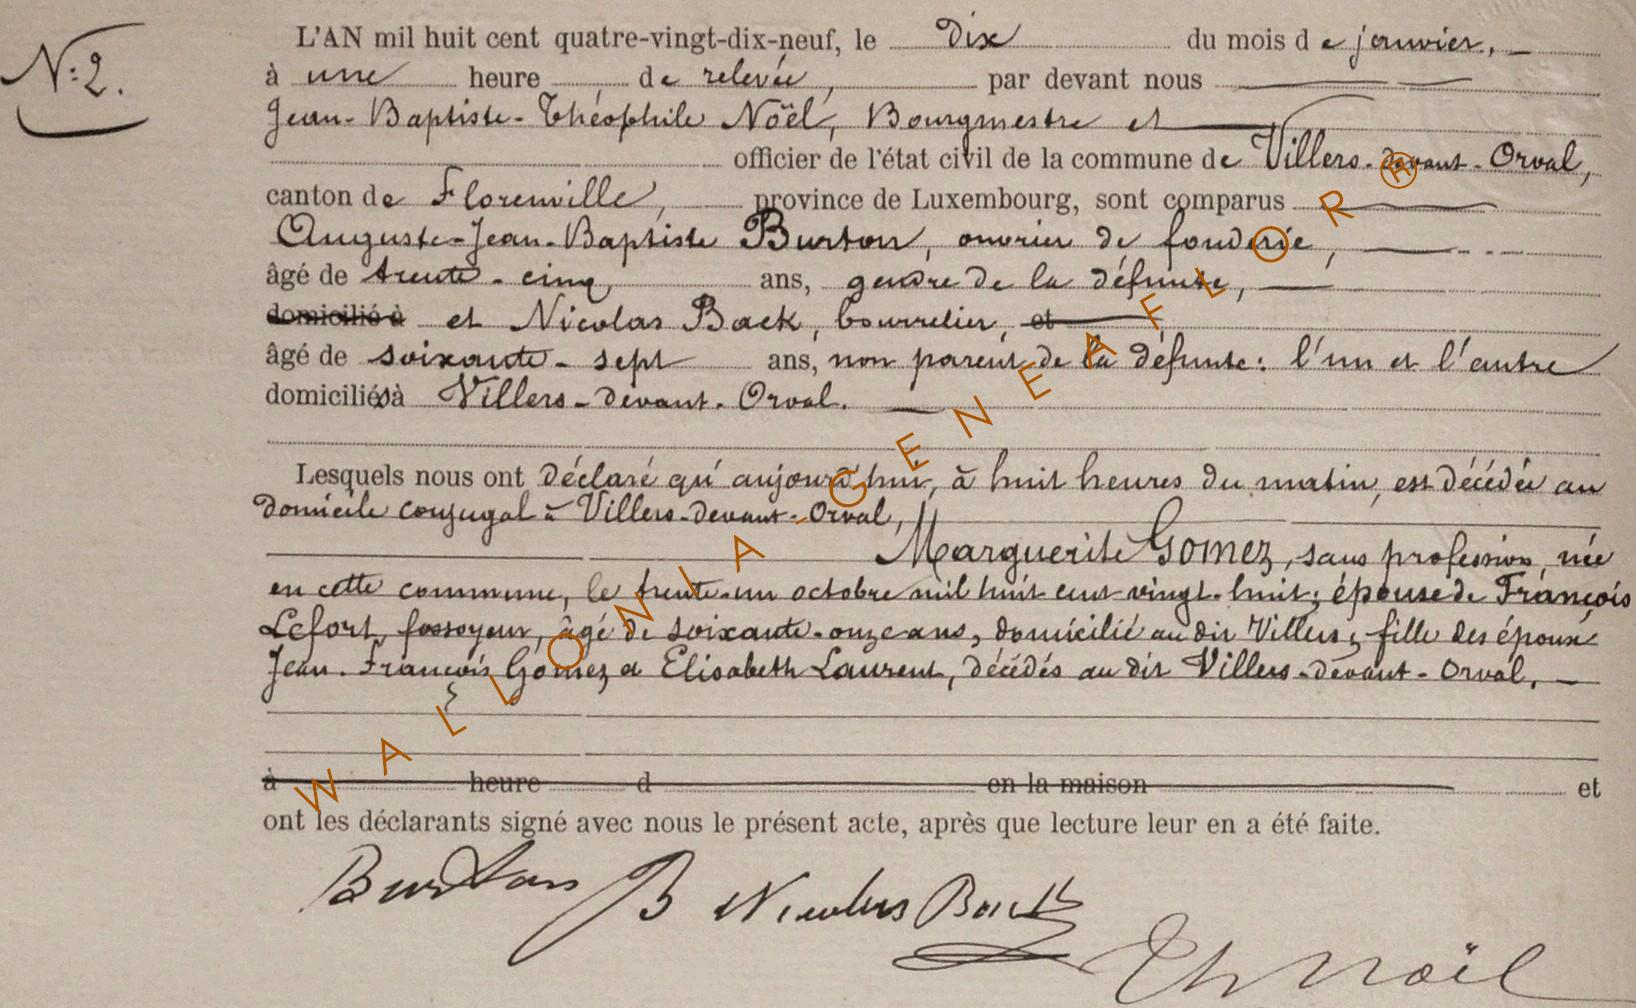 N: 2.
L'AN mil huit cent quatre-vingt-dix-neuf, le dix du mois de janvier,
à une heure de relevée, par devant nous
Jean-Baptiste-Théophile Noël, Bourgmestre et
officier de l'état civil de la commune de Villers-devant-Orval,
canton de Florenville, province de Luxembourg, sont comparus
Auguste-Jean-Baptiste Burton, ouvrier de fonderie,
âgé de trente-cinq ans, gendre de la défunte,
domicilié à et Nicolas Back, bourrelier, et
âgé de soixante-sept ans, non parent de la défunte: l'un et l'autre
domiciliés à Villers-devant-Orval.
Lesquels nous ont déclaré qu'aujourd'hui, à huit heures du matin, est décédée au
domicile conjugal à Villers-devant-Orval,
Marguerite Gomez, sans profession, née
en cette commune, le trente-un octobre mil huit cent vingt-huit; épouse de François
Lefort, fossoyeur, âgé de soixante-onze ans, domicilié au dit Villers; fille des époux
Jean-François Gomez et Elisabeth Laurent, décédés au dit Villers-devant-Orval,
à heure d en la maison et
ont les déclarants signé avec nous le présent acte, après que lecture leur en a été faite.
Burton B Nicolas Back
Th Noël
WALLONIA-GENEAFLOR®